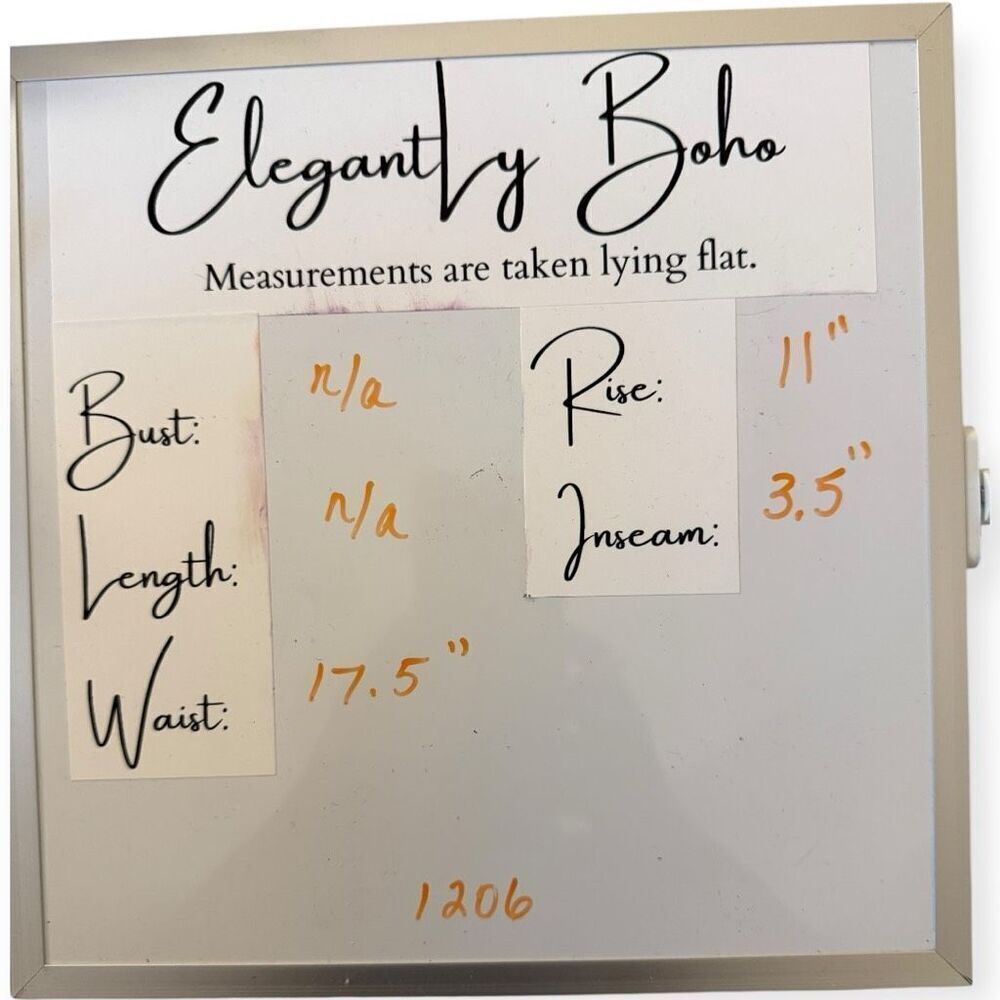 ElegantLy Boho
Measurements are taken lying flat.
Bust: n/a
Length: n/a
Waist: 17.5"
Rise: 11"
Inseam: 3.5"
1206